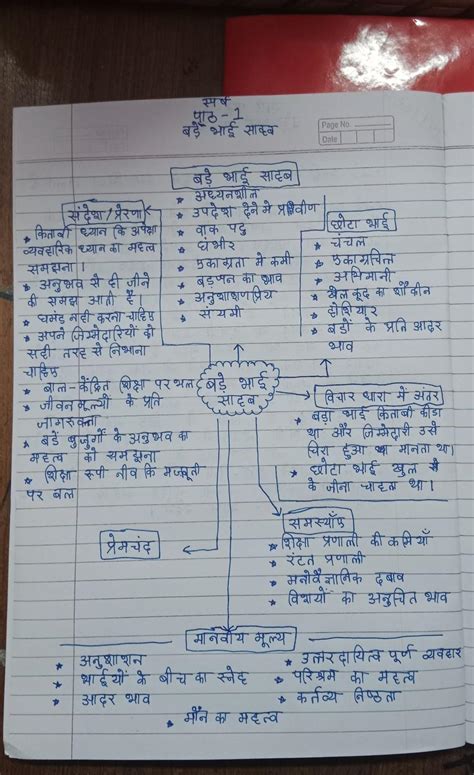 स्पर्श
पाठ - 1
बड़े भाई साहब
Page No.
Date
बड़े भाई साहब
* अध्यनशील
* उपदेश देने मे प्रवीण
* वाक पटु
* गंभीर
* एकाग्रता मे कमी
* बड़प्पन का भाव
* अनुशाशणप्रिय
* संयमी
संदेश / प्रेरणा
* किताबी ध्यान कि अपेक्षा
व्यवहारिक ध्यान का महत्व
समझना।
* अनुभव से ही जीने
की समझ आती हैं।
* घमंड नही करना चाहिए
* अपने जिम्मेदारियों को
सही तरह से निभाना
चाहिए
* बाल-केंद्रित शिक्षा पर बल
* जीवन मूल्यों के प्रति
जागरुक्ता
* बड़े बुजुर्गो के अनुभव का
महत्व को समझना
* शिक्षा रूपी नीव कि मजबूती
पर बल
छोटा भाई
* चंचल
* एकाग्रचित
* अभिमानी
* खेल कूद का शौकीन
* होशियार
* बडों के प्रति आदर
भाव
बड़े भाई
साहब
विचार धारा में अंतर
* बड़ा भाई किताबी कीडा
था और जिम्मेदारी उसे
घिरा हुआ मानता था।
* छोटा भाई खुल
के जीना चाहता था।
प्रेमचंद
समस्याँए
* शिक्षा प्रणाली की कमियाँ
* रंटत प्रणाली
* मनोवैज्ञानिक दबाव
* विषयों का अनुचित भाव
मानवीय मूल्य
* अनुशाशन
* भाईयों के बीच का स्नेह
* आदर भाव
* उत्तरदायित्व पूर्ण व्यवहार
* परिश्रम का महत्व
* कर्तव्य निष्ठता
* मौन का महत्व